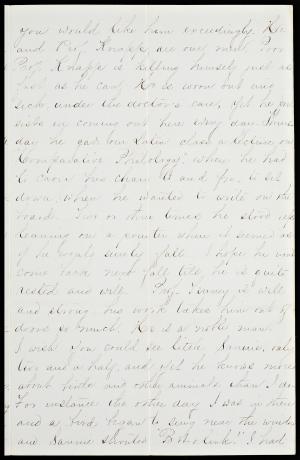 you would like him exceedingly. He
and Prof. Knapp are our men. Poor
Prof. Knapp is killing himself just as
fast as he can. He is worn out and
sick, under the doctor's care, yet he
sists in coming out here every day. Thurs
day he gave our Latin class a lecture on
Comparative Philology, when he had
to carry his chair to and fro, to sit
down, when he wanted to write on the
board. Two or three times he stood
leaning on a pointer when it seemed as
if he would surely fall. I hope he won't
come back next fall till he is quite
rested and well. Prof. Tenney is well
and strong, his work takes him out of
doors so much. He is a noble man.
I wish you could see little Sannie, only
two and a half, and yet he knows more
about birds and other animals than I do.
For instance the other day I was in there
and a bird began to sing near the window
and Sannie shouted "Bobolink!" I had